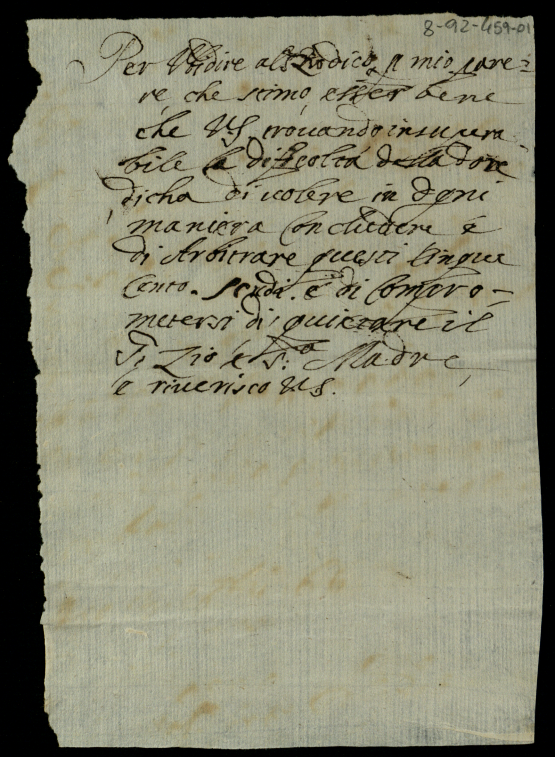 8-92-459-01
Per Vbidire al S. Lodico, p mio pare=
re, che stimo, esser bene
che VS, trouando insupera
bile la dificolta della dote
dicha di uolere in ogni
maniera Concludere é
di Arbitrare questi Cinque
Cento. scudi. é di Compro-
metersi di quietare il
S. Zio é S.ra Madre,
e riuerisco VS.